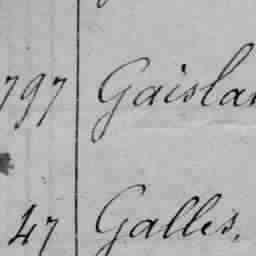 797 Gaislar
47 Galles,